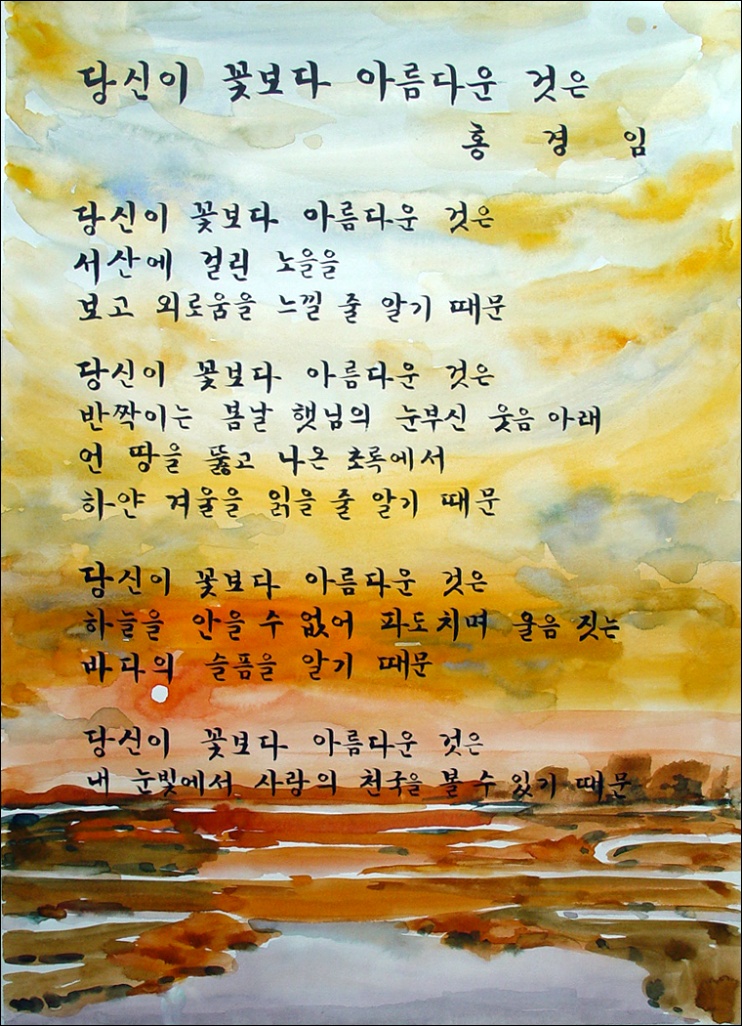 당신이 꽃보다 아름다운 것은
홍 경 임
당신이 꽃보다 아름다운 것은
서산에 걸린 노을을
보고 외로움을 느낄 줄 알기 때문
당신이 꽃보다 아름다운 것은
반짝이는 봄날 햇님의 눈부신 웃음 아래
언 땅을 뚫고 나온 초록에서
하얀 겨울을 읽을 줄 알기 때문
당신이 꽃보다 아름다운 것은
하늘을 안을 수 없어 파도치며 울음 짓는
바다의 슬픔을 알기 때문
당신이 꽃보다 아름다운 것은
내 눈빛에서 사랑의 천국을 볼 수 있기 때문